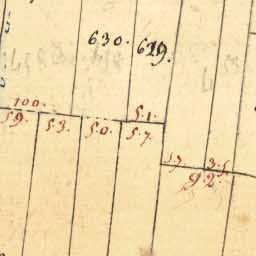 630. 629.
100. 5.1.
59. 53. 50. 57.
57. 35.
92.